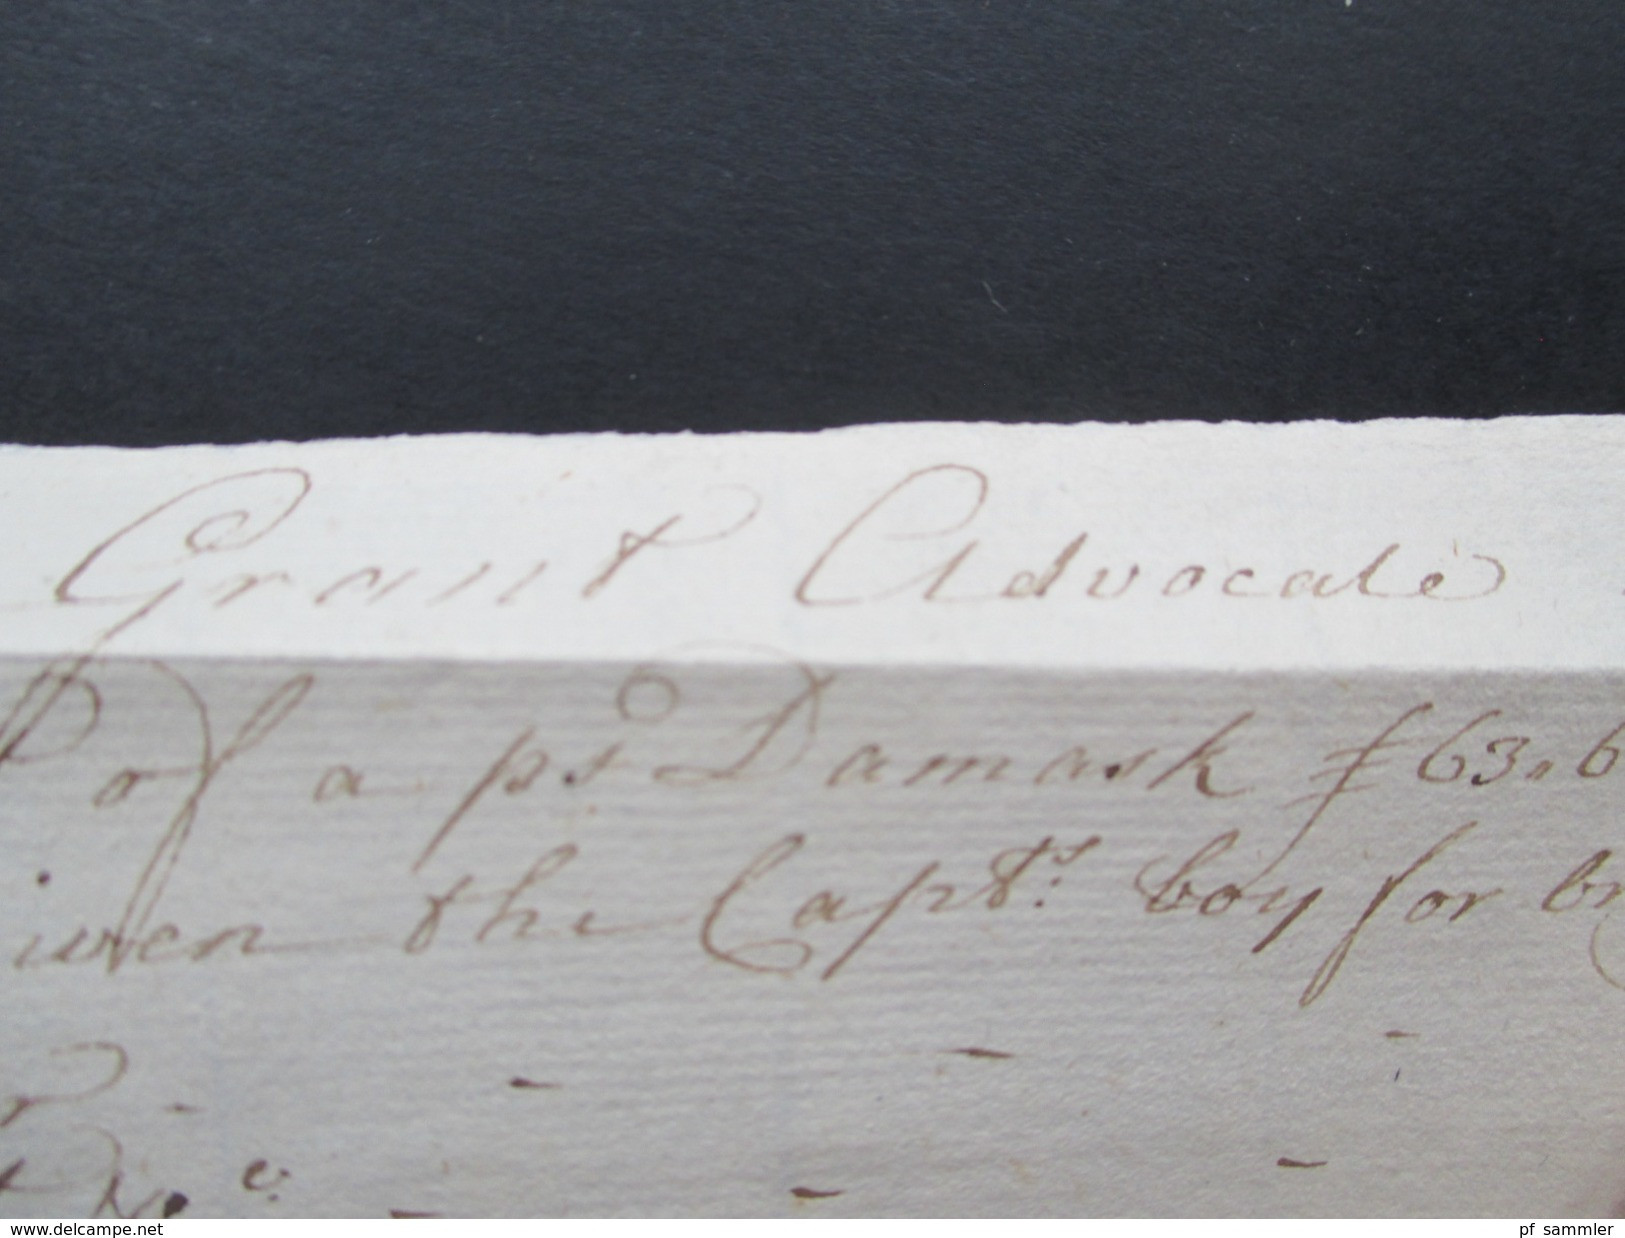 Grant Advocate
of a ps Damask £63.6
iven the Capts: boy for br
No
www.delcampe.net
pf_sammler